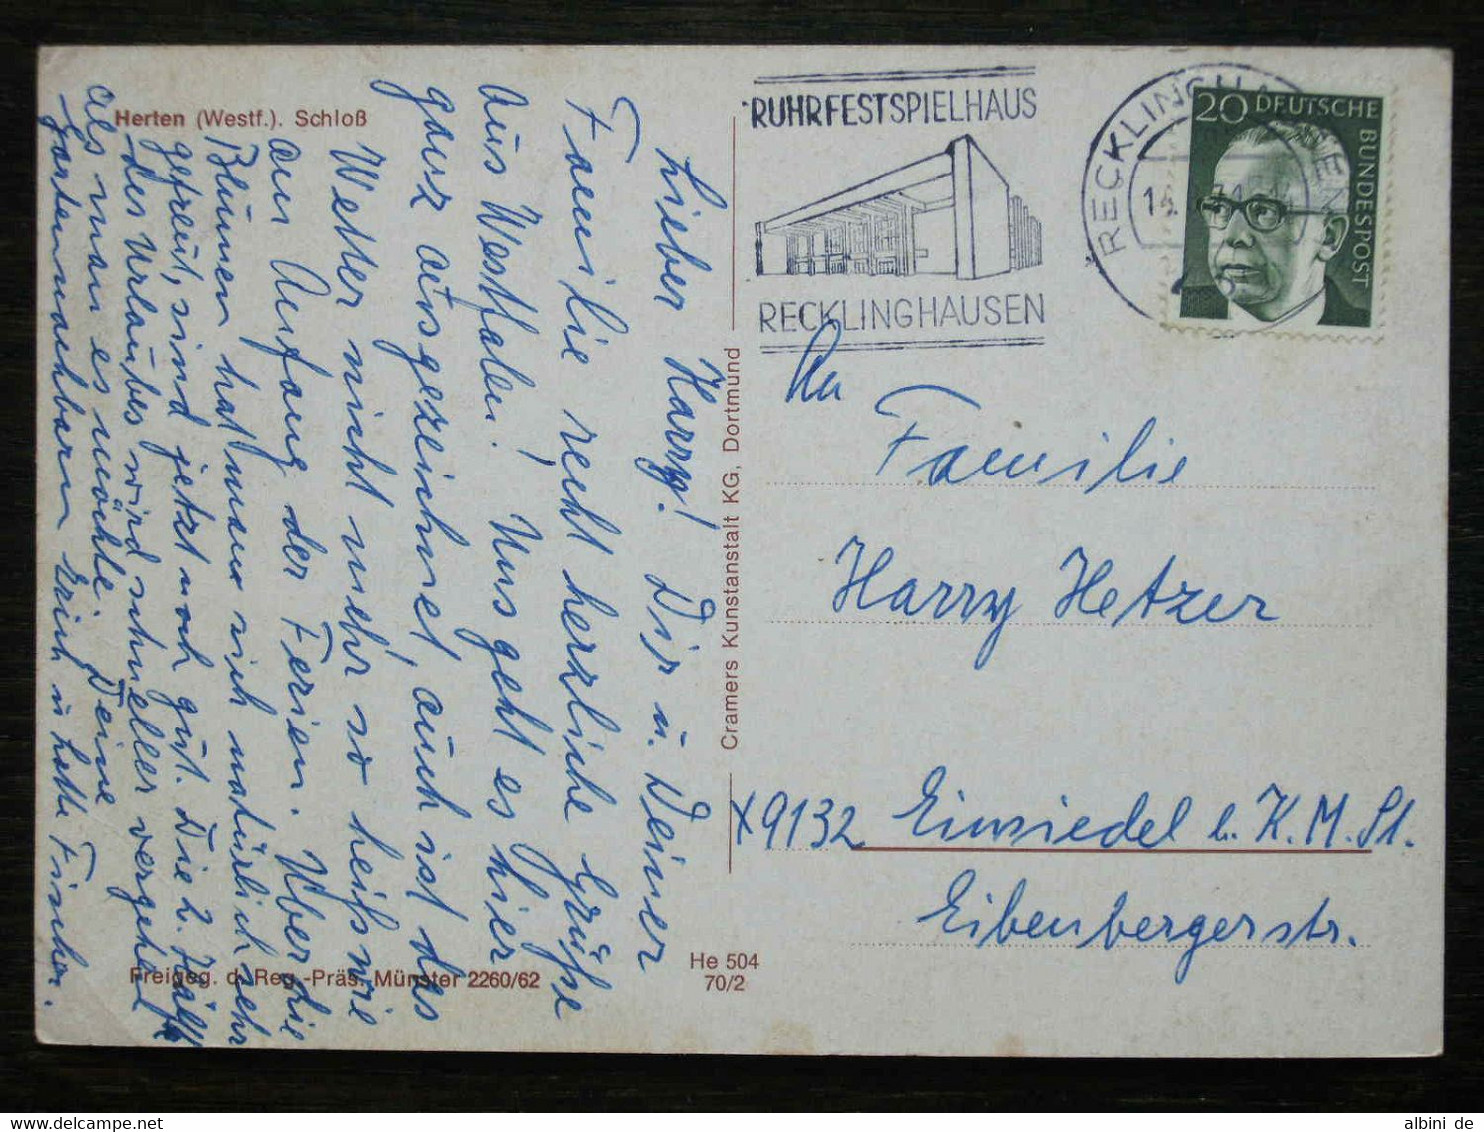 Herten (Westf.). Schloß
Lieber Harry! Dir u. Deiner
Familie recht herzliche Grüße
aus Westfalen! Uns geht es hier
ganz ausgezeichnet, auch ist das
Wetter nicht mehr so heiß wie
am Anfang der Ferien. Über die
Blumen hat man sich natürlich sehr
gefreut, sind jetzt noch gut. Die 2. Hälfte
des Urlaubes wird schneller vergehen
als man es möchte. Deine
Gartennachbarn Erich u. Lotte Fischer.
Freigeg. d. Reg.-Präs. Münster 2260/62
He 504
70/2
Cramers Kunstanstalt KG, Dortmund
RUHRFESTSPIELHAUS
RECKLINGHAUSEN
RECKLINGHAUSEN
14.
20 DEUTSCHE BUNDESPOST
An
Familie
Harry Hetzer
x9132 Einsiedel b. K.M.St.
Eibenbergerstr.
albini de